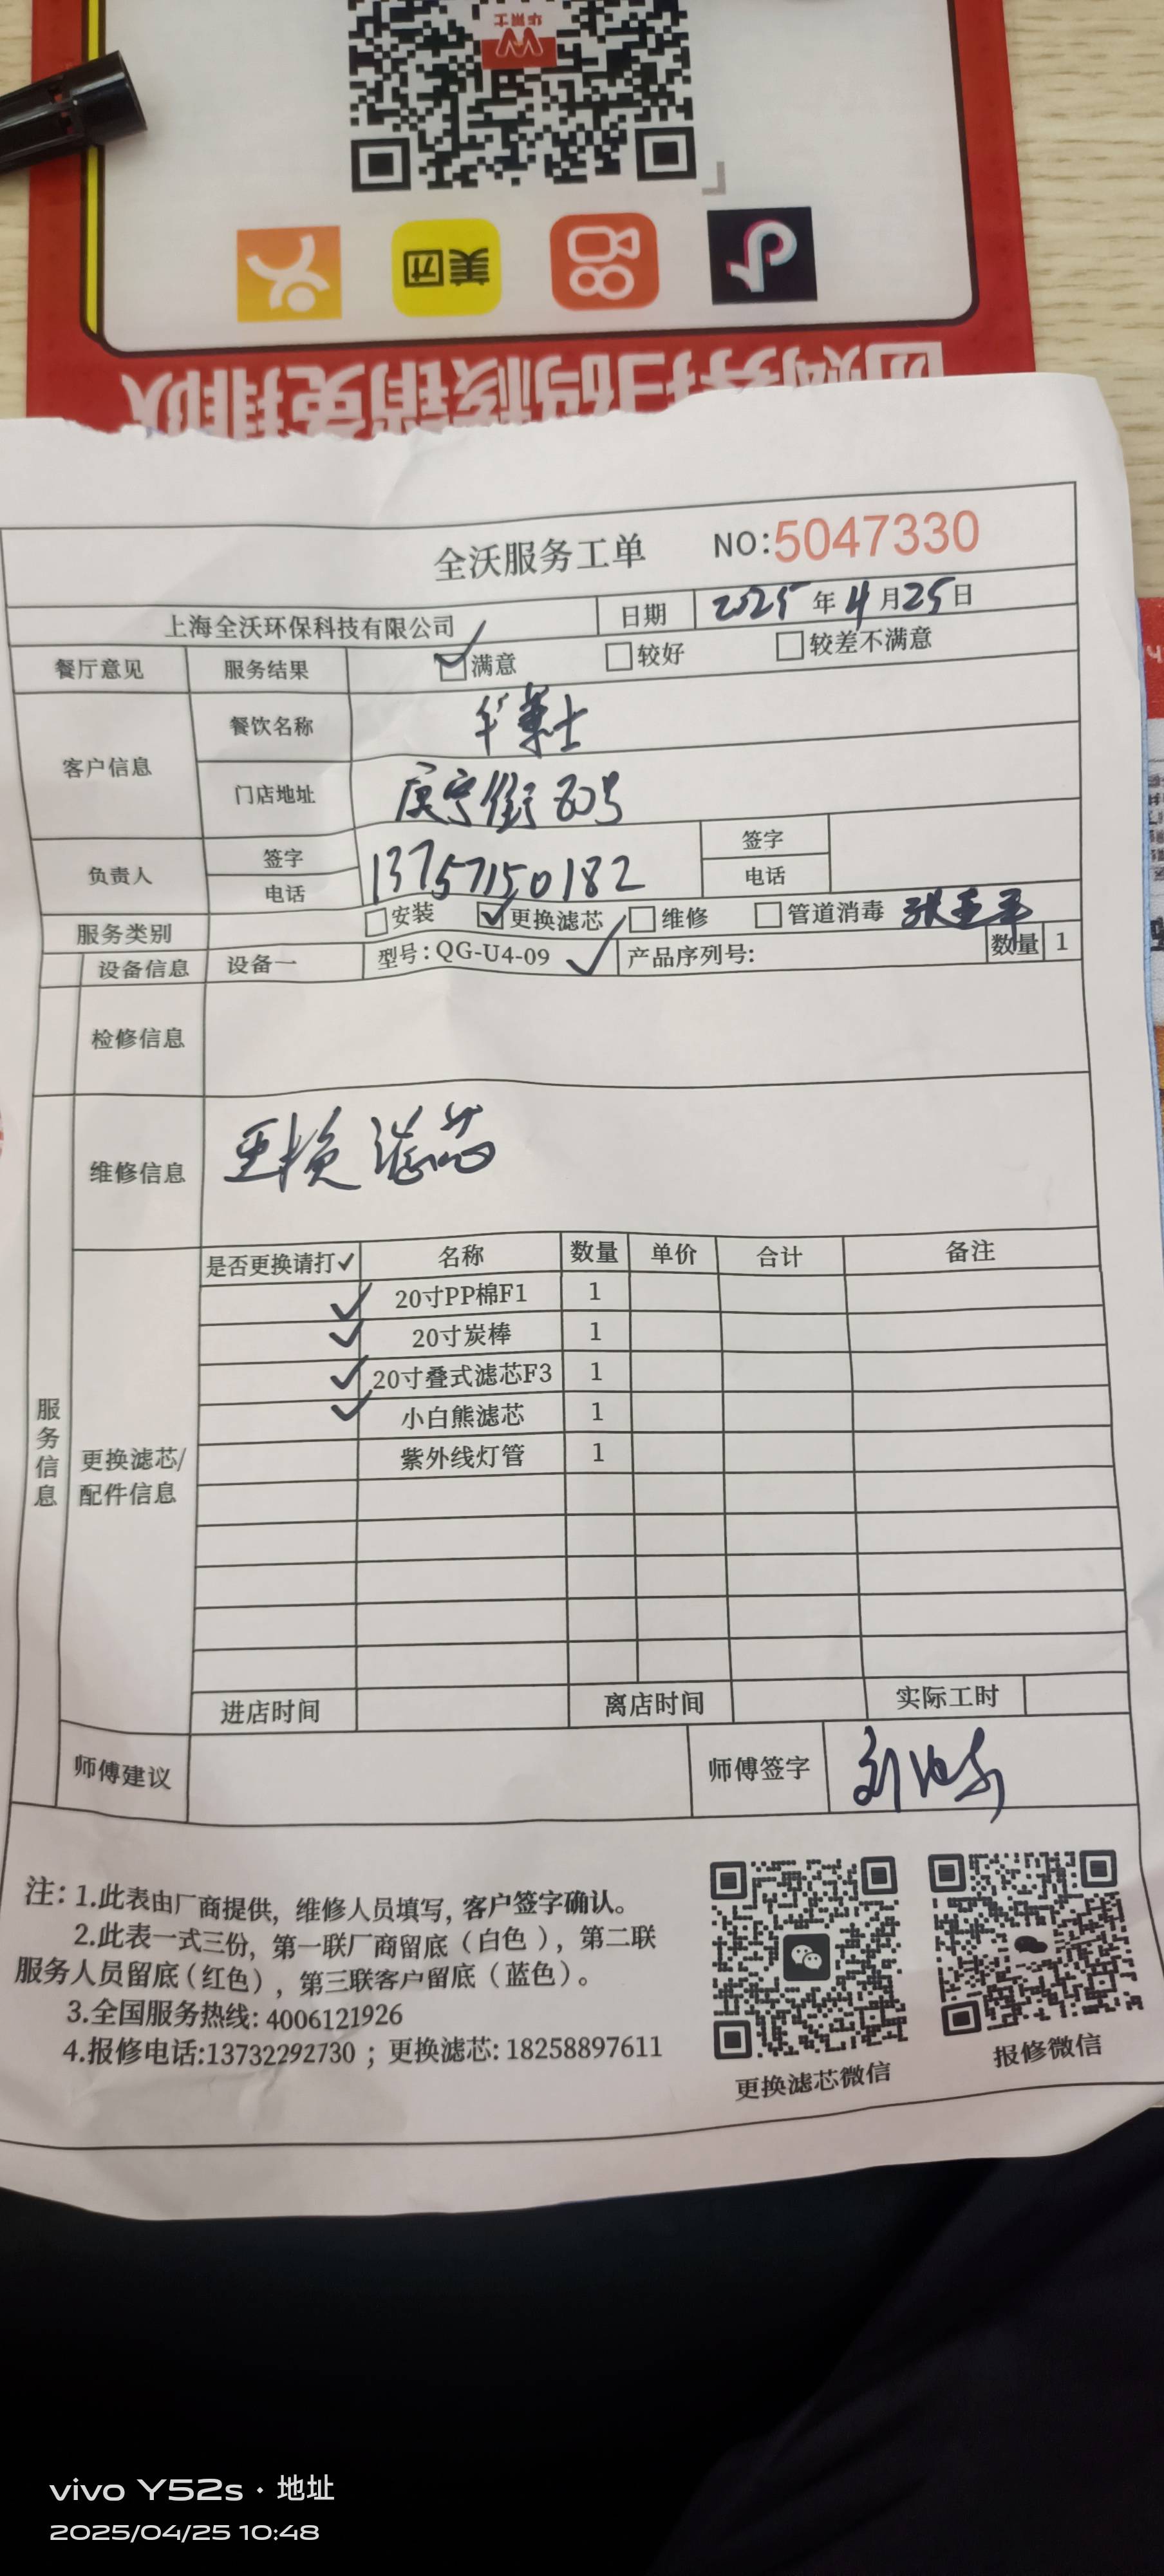 华莱士
美团
团购券扫码核销免排队
全沃服务工单 NO:5047330
上海全沃环保科技有限公司 日期 2025年4月25日
餐厅意见 服务结果 满意 较好 较差不满意
客户信息 餐饮名称 华莱士
门店地址 庆宁街80号
负责人 签字 电话 13757150182 签字 电话
服务类别 安装 更换滤芯 维修 管道消毒
设备信息 设备一 型号:QG-U4-09 产品序列号: 数量 1
检修信息
维修信息 更换滤芯
服务信息
是否更换请打✓ 名称 数量 单价 合计 备注
✓ 20寸PP棉F1 1
✓ 20寸炭棒 1
✓ 20寸叠式滤芯F3 1
✓ 小白熊滤芯 1
紫外线灯管 1
更换滤芯/
配件信息
进店时间 离店时间 实际工时
师傅建议 师傅签字
注:1.此表由厂商提供,维修人员填写,客户签字确认。
2.此表一式三份,第一联厂商留底(白色),第二联
服务人员留底(红色),第三联客户留底(蓝色)。
3.全国服务热线:4006121926
4.报修电话:13732292730;更换滤芯:18258897611
更换滤芯微信
报修微信
vivo Y52s·地址
2025/04/25 10:48